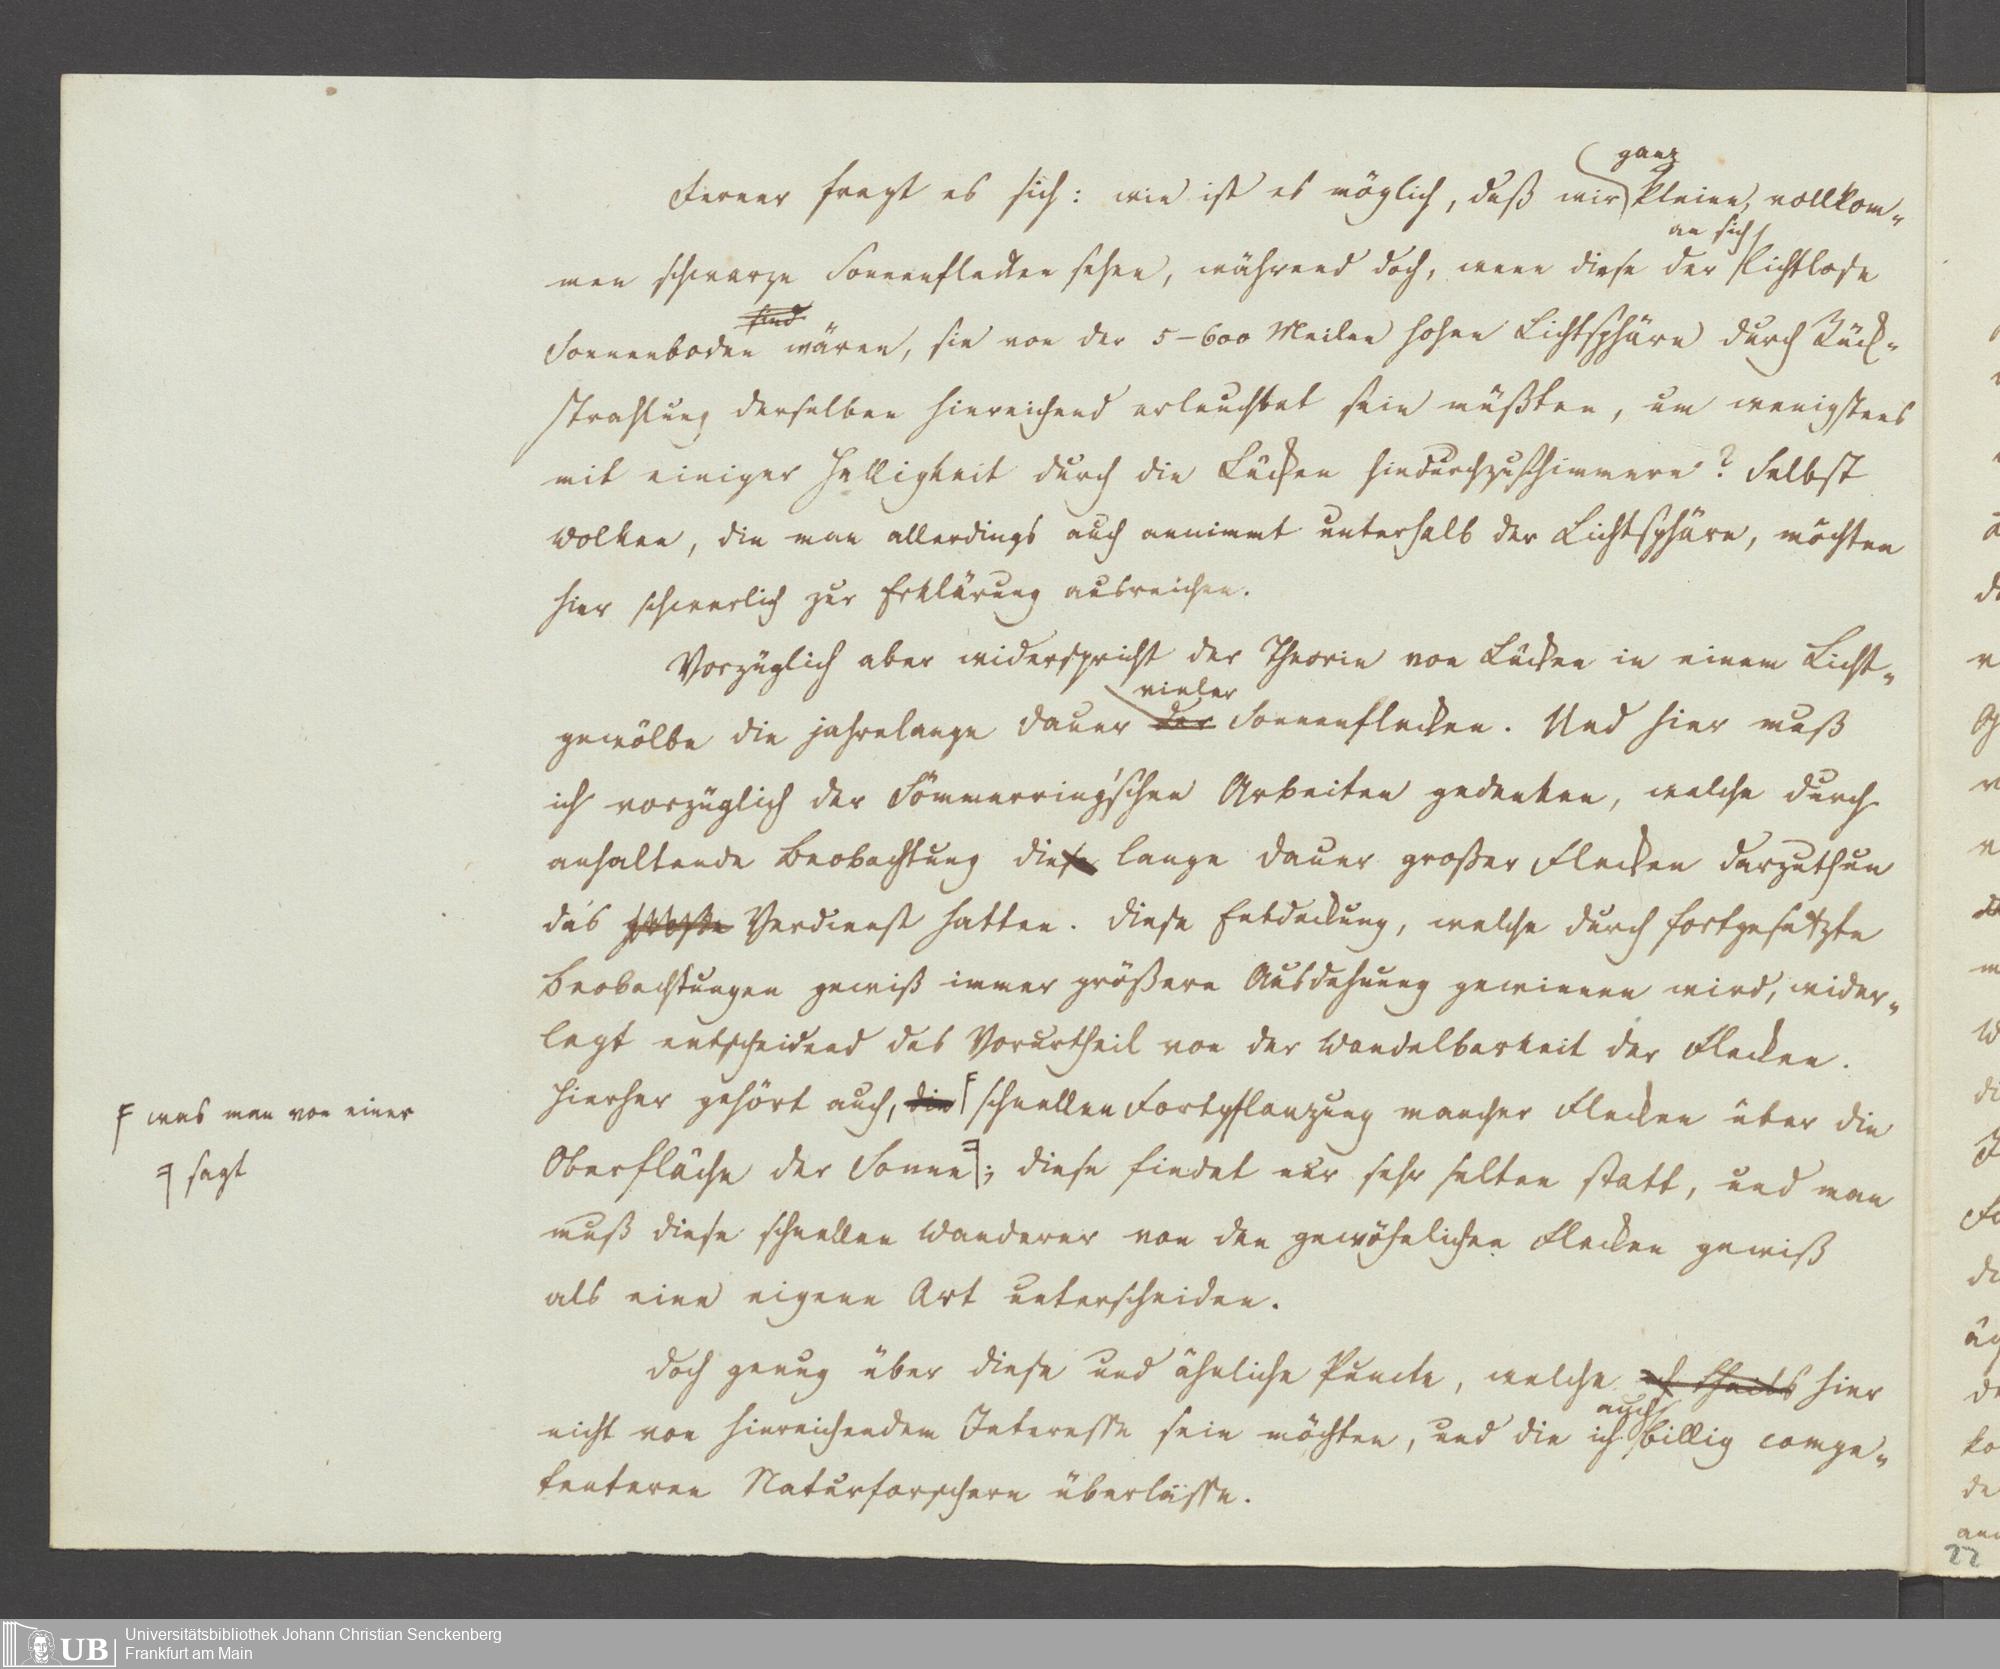 ganz
Ferner fragt es sich: wie ist es möglich, daß wir kleine, vollkom-
an sich
men schwarze Sonnenflecken sehen, während doch, wenn diese der lichtlose
sind
Sonnenboden wären, sie von der 5-600 Meilen hohen Lichtsphäre durch Rück-
strahlung derselben hinreichend erleuchtet sein müßten, um wenigstens
mit einiger Helligkeit durch die Lücken hindurchzuschimmern? Selbst
Wolken, die man allerdings auch annimmt unterhalb der Lichtsphäre, möchten
hier schwerlich zur Erklärung ausreichen.
Vorzüglich aber widerspricht der Theorie von Lücken in einem Licht-
vieler
gewölbe die jahrelange Dauer der Sonnenflecken. Und hier muß
ich vorzüglich der Sömmerring'schen Arbeiten gedenken, welche durch
anhaltende Beobachtung diese lange Dauer großer Flecken darzuthun
das große Verdienst hatten. Diese Entdeckung, welche durch fortgesetzte
Beobachtungen gewiß immer größere Ausdehnung gewinnen wird, wider-
legt entscheidend das Vorurtheil von der Wandelbarkeit der Flecken.
Hierher gehört auch, die schnellen Fortpflanzung mancher Flecken über die
was man von einer
Oberfläche der Sonne; diese findet nur sehr selten statt, und man
sagt
muß diese schnellen Wanderer von den gewöhnlichen Flecken gewiß
als eine eigene Art unterscheiden.
Doch genug über diese und ähnliche Puncte, welche theils hier
auch
nicht von hinreichendem Interesse sein möchten, und die ich billig compe-
tenteren Naturforschern überlasse.
22
UB
Universitätsbibliothek Johann Christian Senckenberg
Frankfurt am Main